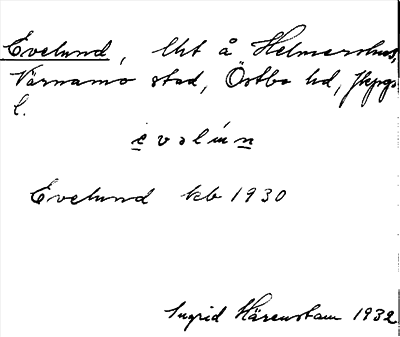 Evelund, lht å Helmershus,
Värnamo stad, Östbo hd, Jkpgs
l.
evəlún
Evelund kb 1930
Ingrid Härenstam 1932